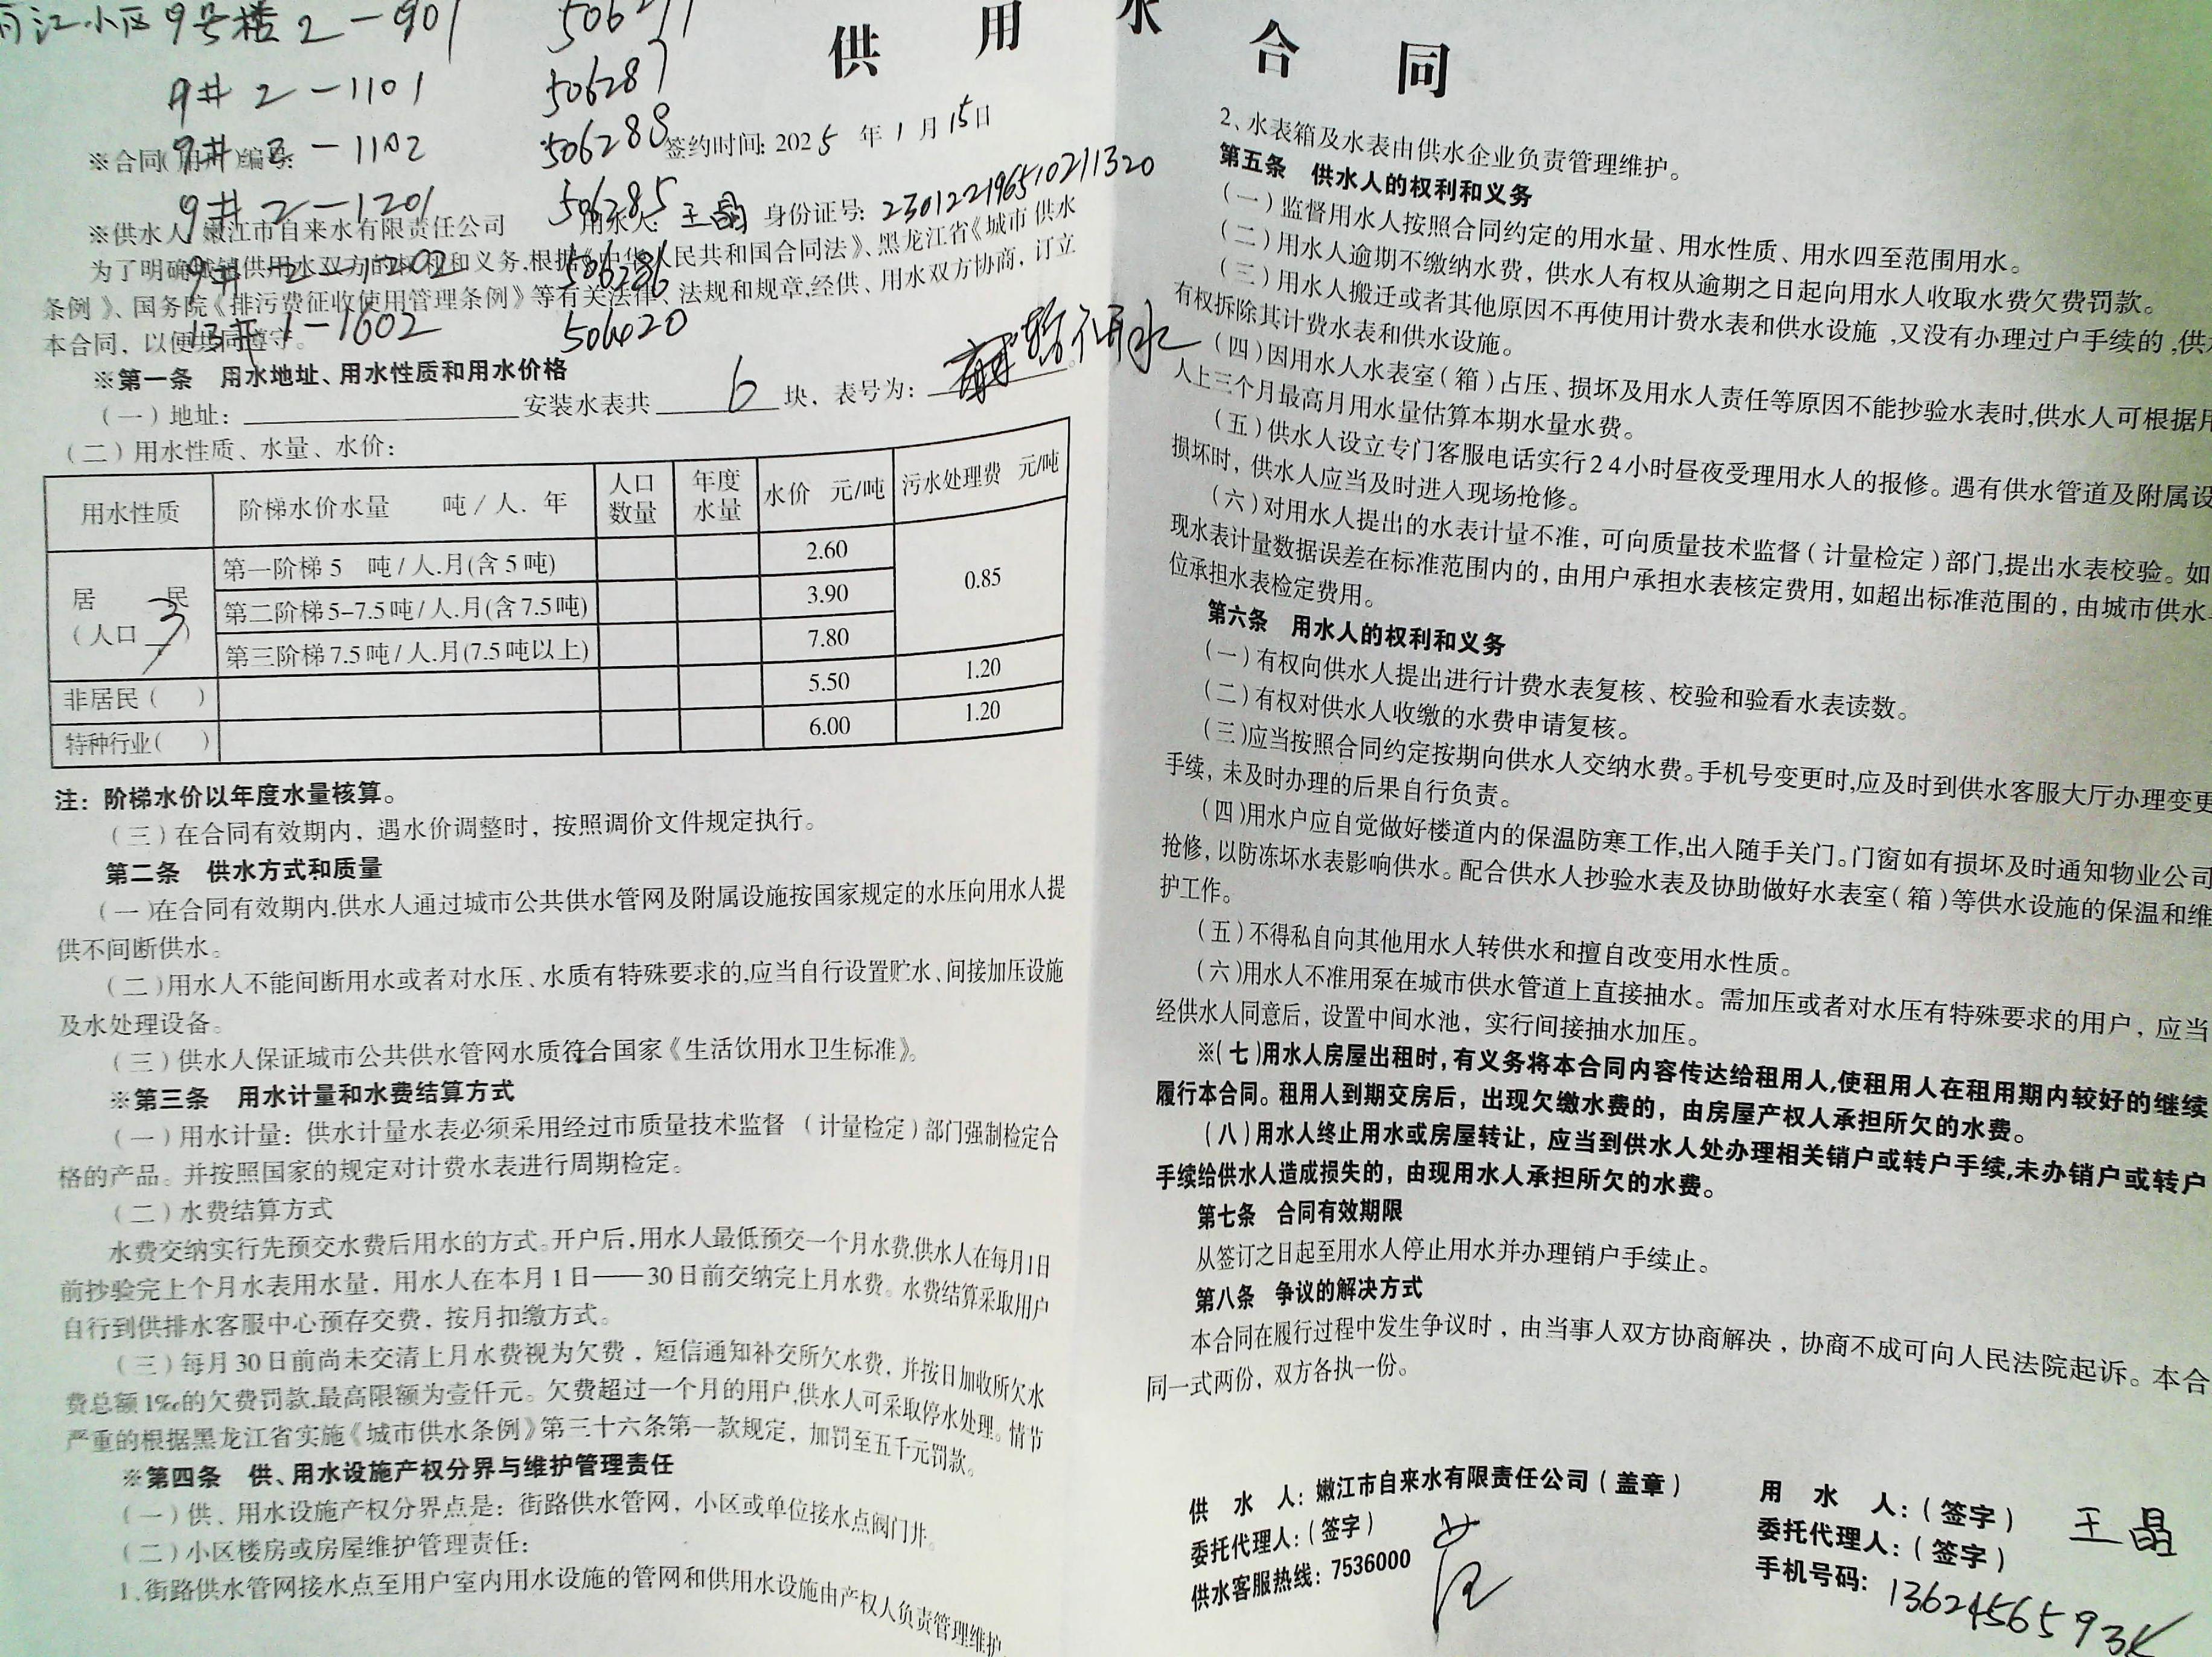 供 用 水 合 同
江小区 9号楼 2-901
9# 2-1101 506287
9# 2-1102 506288
9# 2-1201 506285
9# 2-1202 506286
13# 1-1602
签约时间: 2025 年 1 月 15 日
※合同(用户)编号:
※供水人 嫩江市自来水有限责任公司 用水人: 王晶 身份证号: 230122196510211320
为了明确城镇供用水双方的权利和义务,根据《中华人民共和国合同法》、黑龙江省《城市供水
条例》、国务院《排污费征收使用管理条例》等有关法律、法规和规章,经供、用水双方协商，订立
本合同，以便共同遵守。
※第一条 用水地址、用水性质和用水价格
(一)地址: 安装水表共 6 块，表号为: 暂不用水
(二)用水性质、水量、水价:
用水性质 阶梯水价水量 吨/人.年 人口数量 年度水量 水价 元/吨 污水处理费 元/吨
居民(人口 3 ) 第一阶梯5 吨/人.月(含5吨) 2.60 0.85
第二阶梯5-7.5吨/人.月(含7.5吨) 3.90
第三阶梯7.5吨/人.月(7.5吨以上) 7.80
非居民( ) 5.50 1.20
特种行业( ) 6.00 1.20
注: 阶梯水价以年度水量核算。
(三)在合同有效期内，遇水价调整时，按照调价文件规定执行。
第二条 供水方式和质量
(一)在合同有效期内,供水人通过城市公共供水管网及附属设施按国家规定的水压向用水人提
供不间断供水。
(二)用水人不能间断用水或者对水压、水质有特殊要求的,应当自行设置贮水、间接加压设施
及水处理设备。
(三)供水人保证城市公共供水管网水质符合国家《生活饮用水卫生标准》。
※第三条 用水计量和水费结算方式
(一)用水计量: 供水计量水表必须采用经过市质量技术监督 (计量检定)部门强制检定合
格的产品。并按照国家的规定对计费水表进行周期检定。
(二)水费结算方式
水费交纳实行先预交水费后用水的方式。开户后,用水人最低预交一个月水费,供水人在每月1日
前抄验完上个月水表用水量，用水人在本月1日——30日前交纳完上月水费。水费结算采取用户
自行到供排水客服中心预存交费，按月扣缴方式。
(三)每月30日前尚未交清上月水费视为欠费，短信通知补交所欠水费，并按日加收所欠水
费总额1‰的欠费罚款,最高限额为壹仟元。欠费超过一个月的用户,供水人可采取停水处理。情节
严重的根据黑龙江省实施《城市供水条例》第三十六条第一款规定，加罚至五千元罚款。
※第四条 供、用水设施产权分界与维护管理责任
(一)供、用水设施产权分界点是: 街路供水管网，小区或单位接水点阀门井。
(二)小区楼房或房屋维护管理责任:
1.街路供水管网接水点至用户室内用水设施的管网和供用水设施由产权人负责管理维护
2、水表箱及水表由供水企业负责管理维护。
第五条 供水人的权利和义务
(一)监督用水人按照合同约定的用水量、用水性质、用水四至范围用水。
(二)用水人逾期不缴纳水费，供水人有权从逾期之日起向用水人收取水费欠费罚款。
(三)用水人搬迁或者其他原因不再使用计费水表和供水设施，又没有办理过户手续的,供
有权拆除其计费水表和供水设施。
(四)因用水人水表室(箱)占压、损坏及用水人责任等原因不能抄验水表时,供水人可根据用
人上三个月最高月用水量估算本期水量水费。
(五)供水人设立专门客服电话实行24小时昼夜受理用水人的报修。遇有供水管道及附属设
损坏时，供水人应当及时进入现场抢修。
(六)对用水人提出的水表计量不准，可向质量技术监督(计量检定)部门,提出水表校验。如
现水表计量数据误差在标准范围内的，由用户承担水表核定费用，如超出标准范围的，由城市供水
位承担水表检定费用。
第六条 用水人的权利和义务
(一)有权向供水人提出进行计费水表复核、校验和验看水表读数。
(二)有权对供水人收缴的水费申请复核。
(三)应当按照合同约定按期向供水人交纳水费。手机号变更时,应及时到供水客服大厅办理变更
手续，未及时办理的后果自行负责。
(四)用水户应自觉做好楼道内的保温防寒工作,出入随手关门。门窗如有损坏及时通知物业公司
抢修,以防冻坏水表影响供水。配合供水人抄验水表及协助做好水表室(箱)等供水设施的保温和维
护工作。
(五)不得私自向其他用水人转供水和擅自改变用水性质。
(六)用水人不准用泵在城市供水管道上直接抽水。需加压或者对水压有特殊要求的用户，应当
经供水人同意后，设置中间水池，实行间接抽水加压。
※(七)用水人房屋出租时,有义务将本合同内容传达给租用人,使租用人在租用期内较好的继续
履行本合同。租用人到期交房后，出现欠缴水费的，由房屋产权人承担所欠的水费。
(八)用水人终止用水或房屋转让，应当到供水人处办理相关销户或转户手续,未办销户或转户
手续给供水人造成损失的，由现用水人承担所欠的水费。
第七条 合同有效期限
从签订之日起至用水人停止用水并办理销户手续止。
第八条 争议的解决方式
本合同在履行过程中发生争议时，由当事人双方协商解决，协商不成可向人民法院起诉。本合
同一式两份，双方各执一份。
供 水 人: 嫩江市自来水有限责任公司(盖章)
委托代理人:(签字)
供水客服热线: 7536000
用 水 人:(签字) 王晶
委托代理人:(签字)
手机号码: